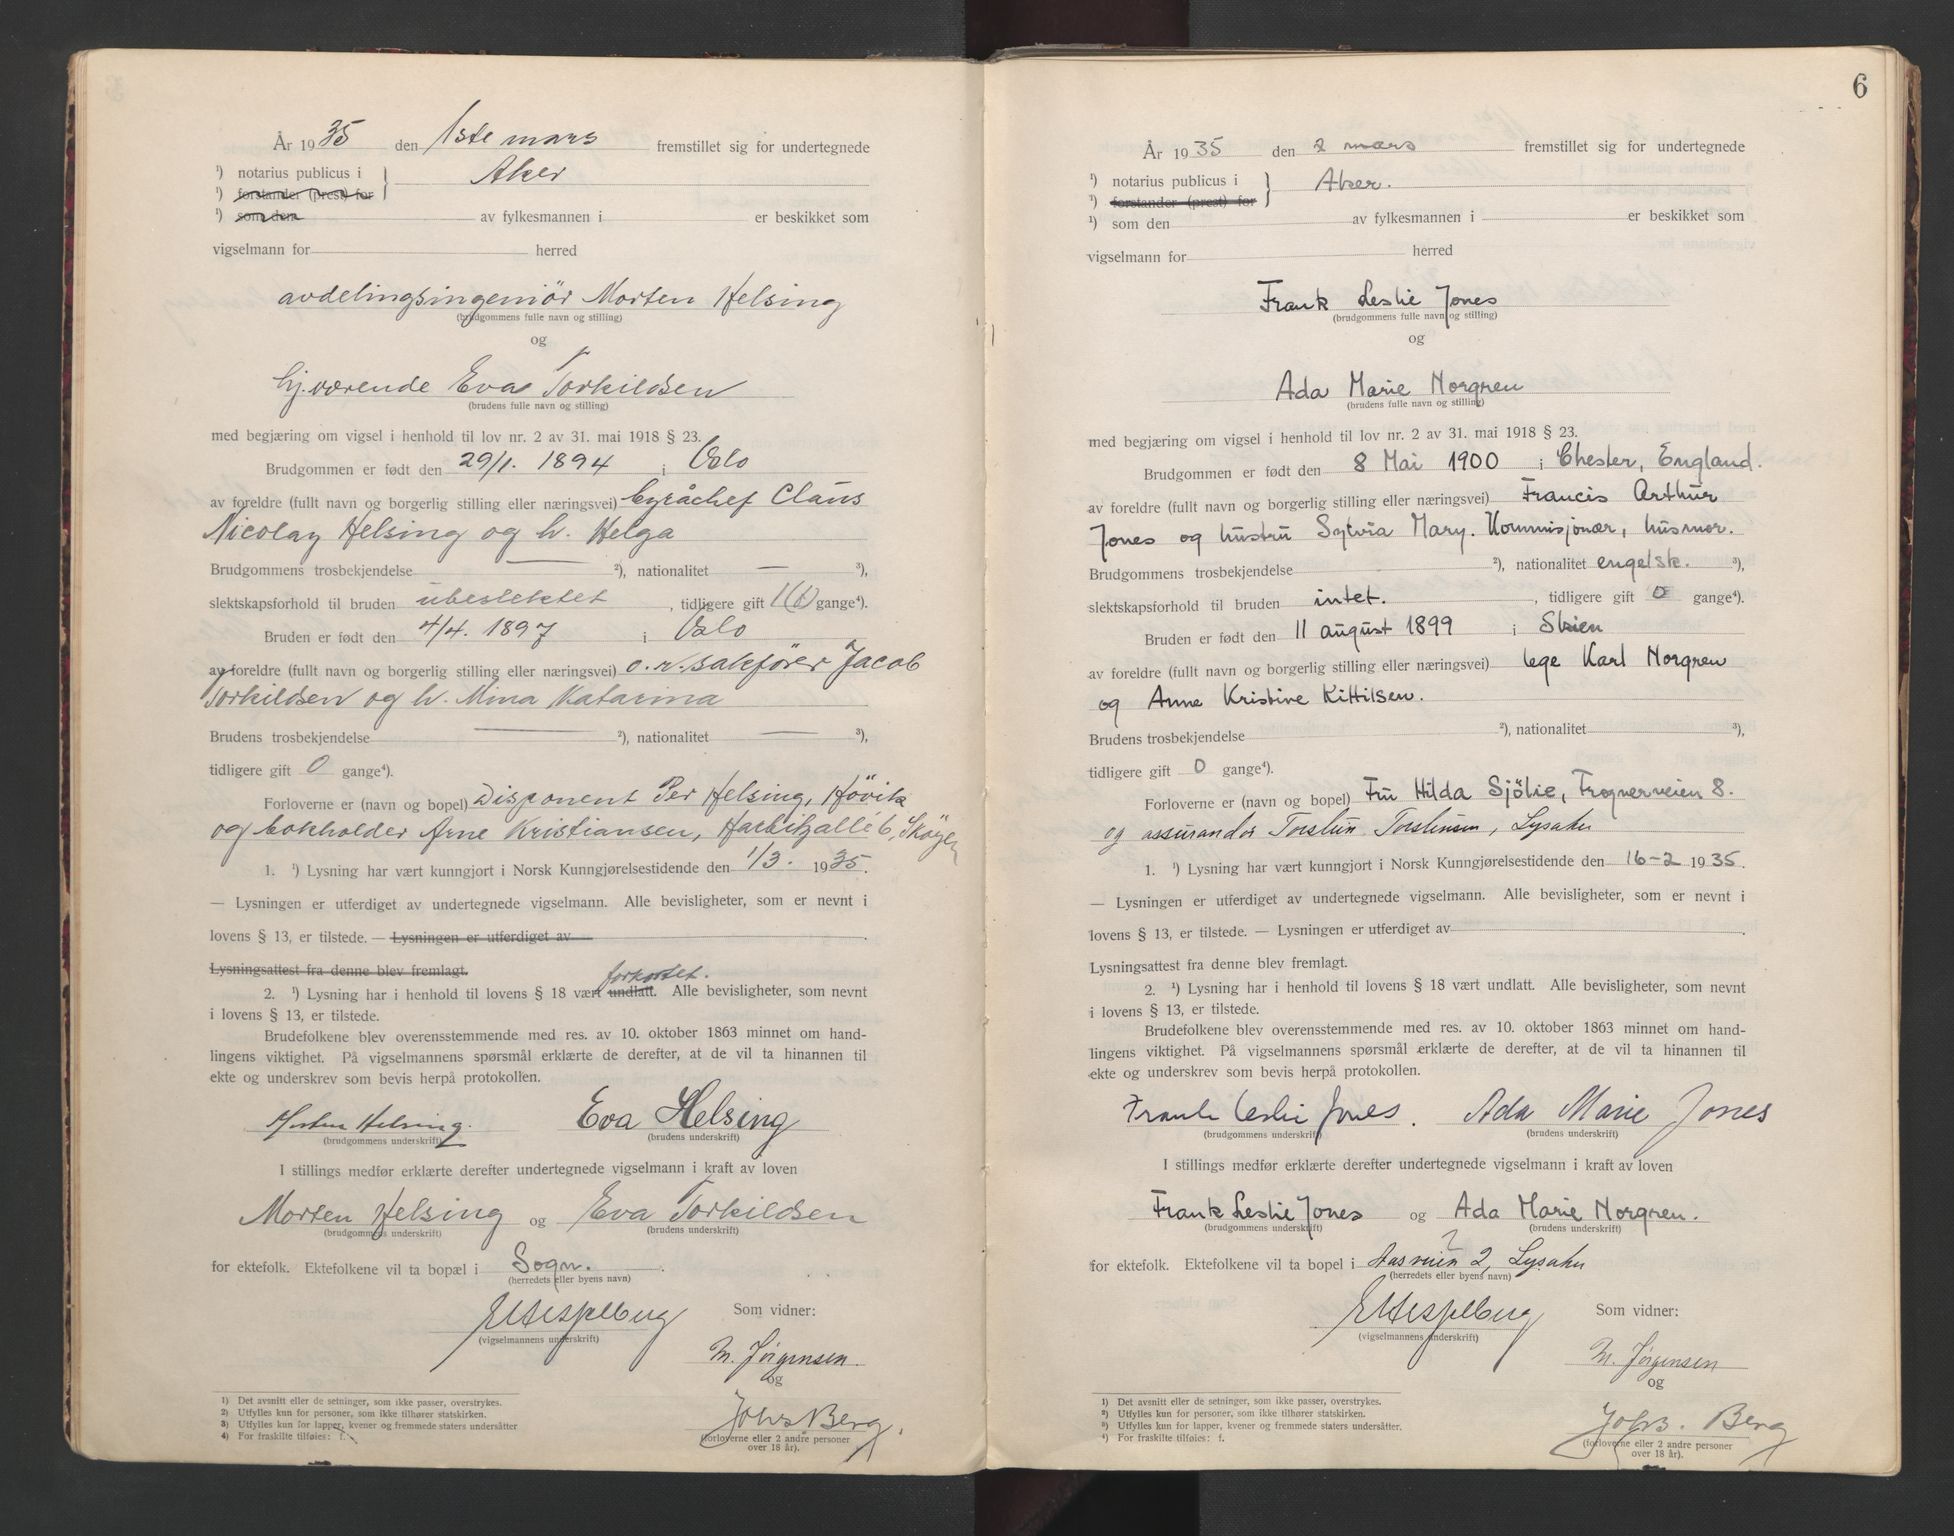 År 1935 den 1ste mars fremstillet sig for undertegnede
¹) notarius publicus i } Aker
¹) forstander (prest) for
¹) som den av fylkesmannen i er beskikket som
vigselmann for herred
avdelingsingeniör Morten Helsing
(brudgommens fulle navn og stilling)
og
hj.værende Eva Torkildsen
(brudens fulle navn og stilling)
med begjæring om vigsel i henhold til lov nr. 2 av 31. mai 1918 § 23.
Brudgommen er født den 29/1. 1894 i Oslo
av foreldre (fullt navn og borgerlig stilling eller næringsvei) byråchef Claus
Nicolay Helsing og h. Helga
Brudgommens trosbekjendelse — ²), nationalitet — ³),
slektskapsforhold til bruden ubeslektet, tidligere gift 1(f) gange⁴).
Bruden er født den 4/4. 1897 i Oslo
av foreldre (fullt navn og borgerlig stilling eller næringsvei) o.r.sakförer Jacob
Torkildsen og h. Mina Katarina
Brudens trosbekjendelse — ²), nationalitet — ³),
tidligere gift 0 gange⁴).
Forloverne er (navn og bopel) Disponent Per Helsing, Hövik
og bokholder Arne Kristiansen, Harbitzallé 6, Sköyen
1. ¹) Lysning har vært kunngjort i Norsk Kunngjørelsestidende den 1/3. 1935.
— Lysningen er utferdiget av undertegnede vigselmann. Alle bevisligheter, som er nevnt i
lovens § 13, er tilstede. — Lysningen er utferdiget av
Lysningsattest fra denne blev fremlagt.
forkortet.
2. ¹) Lysning har i henhold til lovens § 18 vært undlatt. Alle bevisligheter, som nevnt
i lovens § 13, er tilstede.
Brudefolkene blev overensstemmende med res. av 10. oktober 1863 minnet om hand-
lingens viktighet. På vigselmannens spørsmål erklærte de derefter, at de vil ta hinannen til
ekte og underskrev som bevis herpå protokollen.
Morten Helsing. Eva Helsing
(brudgommens underskrift) (brudens underskrift)
I stillings medfør erklærte derefter undertegnede vigselmann i kraft av loven
Morten Helsing og Eva Torkildsen
(brudgommens underskrift) (brudens underskrift)
for ektefolk. Ektefolkene vil ta bopæl i Sogn.
(herredets eller byens navn)
Som vidner:
(vigselmannens underskrift)
M. Jörgensen
og
Johs Berg.
(forloverne eller 2 andre personer
over 18 år).
¹) Det avsnitt eller de setninger, som ikke passer, overstrykes.
²) Utfylles kun for personer, som ikke tilhører statskirken.
³) Utfylles kun for lapper, kvener og fremmede staters undersåtter
⁴) For fraskilte tilføies: f.
6
År 1935 den 2 mars fremstillet sig for undertegnede
¹) notarius publicus i } Aker.
¹) forstander (prest) for
¹) som den av fylkesmannen i er beskikket som
vigselmann for herred
Frank Leslie Jones
(brudgommens fulle navn og stilling)
og
Ada Marie Norgren
(brudens fulle navn og stilling)
med begjæring om vigsel i henhold til lov nr. 2 av 31. mai 1918 § 23.
Brudgommen er født den 8 Mai 1900 i Chester, England.
av foreldre (fullt navn og borgerlig stilling eller næringsvei) Francis Arthur
Jones og hustru Sylvia Mary. Kommisjonær, husmor.
Brudgommens trosbekjendelse ²), nationalitet engelsk. ³),
slektskapsforhold til bruden intet., tidligere gift 0 gange⁴).
Bruden er født den 11 august 1899 i Skien
av foreldre (fullt navn og borgerlig stilling eller næringsvei) lege Karl Norgren
og Anne Kristine Kittilsen.
Brudens trosbekjendelse ²), nationalitet ³),
tidligere gift 0 gange⁴).
Forloverne er (navn og bopel) Fru Hilda Sjölie, Frognerveien 8.
og assurandör Torstein Torstensen, Lysaker
1. ¹) Lysning har vært kunngjort i Norsk Kunngjørelsestidende den 16-2 1935.
— Lysningen er utferdiget av undertegnede vigselmann. Alle bevisligheter, som er nevnt i
lovens § 13, er tilstede. — Lysningen er utferdiget av
Lysningsattest fra denne blev fremlagt.
2. ¹) Lysning har i henhold til lovens § 18 vært undlatt. Alle bevisligheter, som nevnt
i lovens § 13, er tilstede.
Brudefolkene blev overensstemmende med res. av 10. oktober 1863 minnet om hand-
lingens viktighet. På vigselmannens spørsmål erklærte de derefter, at de vil ta hinannen til
ekte og underskrev som bevis herpå protokollen.
Frank Leslie Jones. Ada Marie Jones
(brudgommens underskrift) (brudens underskrift)
I stillings medfør erklærte derefter undertegnede vigselmann i kraft av loven
Frank Leslie Jones og Ada Marie Norgren.
(brudgommens underskrift) (brudens underskrift)
for ektefolk. Ektefolkene vil ta bopel i Aasveien 2, Lysaker
(herredets eller byens navn)
Som vidner:
(vigselmannens underskrift)
M. Jörgensen
og
Johs. Berg
(forloverne eller 2 andre personer
over 18 år).
¹) Det avsnitt eller de setninger, som ikke passer, overstrykes.
²) Utfylles kun for personer, som ikke tilhører statskirken.
³) Utfylles kun for lapper, kvener og fremmede staters undersåtter.
⁴) For fraskilte tilføies: f.